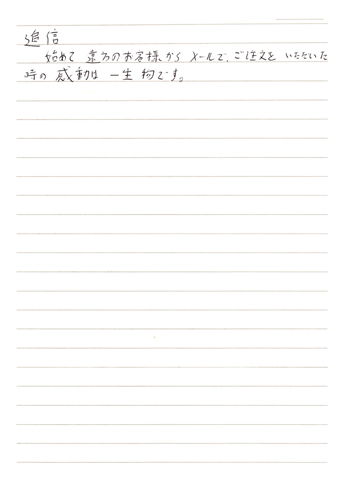 追信
始めて 遠方のお客様から メールで、ご注文を いただいた
時の 感動は 一生物です。